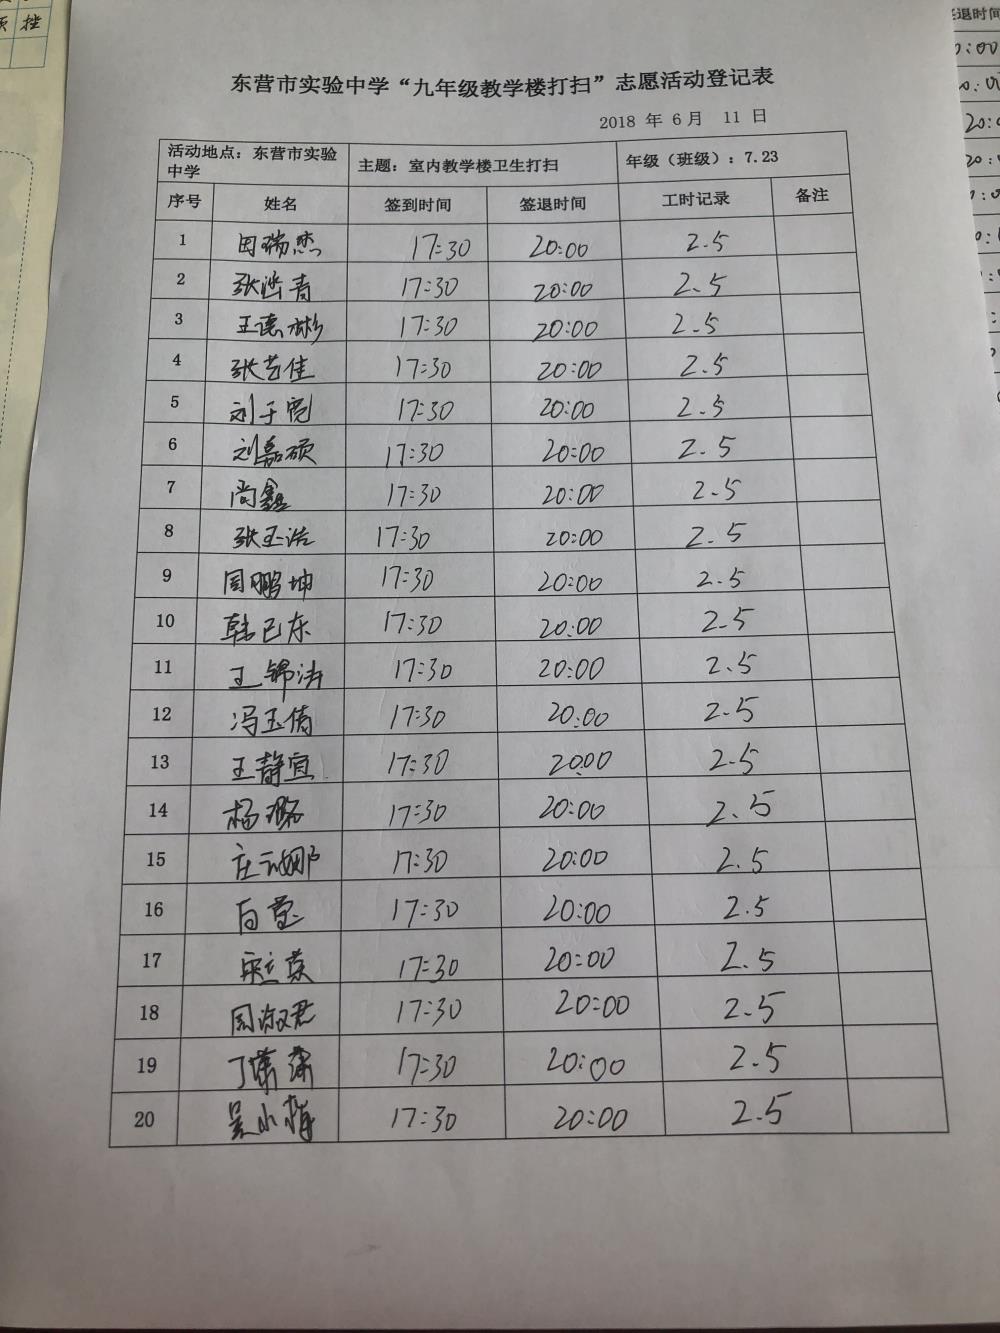 东营市实验中学“九年级教学楼打扫”志愿活动登记表
2018 年 6 月 11 日
活动地点：东营市实验中学 主题：室内教学楼卫生打扫 年级（班级）：7.23
序号 姓名 签到时间 签退时间 工时记录 备注
1 田瑞杰 17:30 20:00 2.5
2 张 青 17:30 20:00 2.5
3 王德彬 17:30 20:00 2.5
4 张艺佳 17:30 20:00 2.5
5 刘子 17:30 20:00 2.5
6 刘嘉硕 17:30 20:00 2.5
7 尚鑫 17:30 20:00 2.5
8 张玉浩 17:30 20:00 2.5
9 周鹏坤 17:30 20:00 2.5
10 韩已东 17:30 20:00 2.5
11 王锦涛 17:30 20:00 2.5
12 冯玉倩 17:30 20:00 2.5
13 王静宜 17:30 20:00 2.5
14 杨璐 17:30 20:00 2.5
15 庄 娜 17:30 20:00 2.5
16 白莹 17:30 20:00 2.5
17 荣 17:30 20:00 2.5
18 周淑君 17:30 20:00 2.5
19 丁潇潇 17:30 20:00 2.5
20 吴小梅 17:30 20:00 2.5